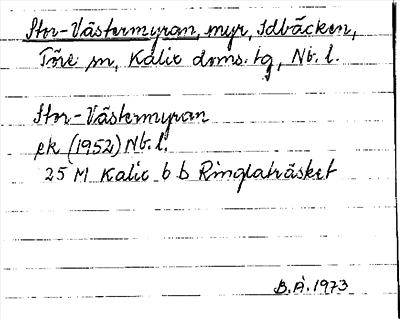 Stor-Västermyran, myr, Idbäcken,
Töre sn, Kalix doms. tg, Nb. l.
Stor-Västermyran
ek (1952) Nb. l.
25 M Kalix 6 b Ringlaträsket
B.Å. 1973